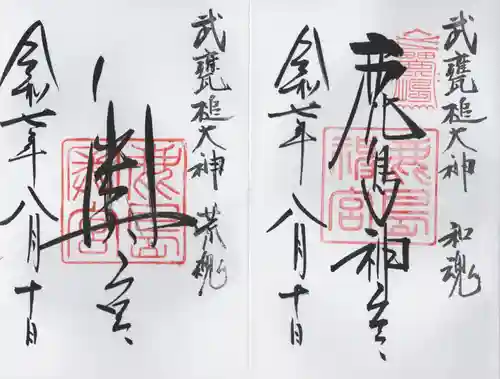 武甕槌大神 和魂
鹿島神宮
令和七年八月十日
武甕槌大神 荒魂
奥宮
令和七年八月十日